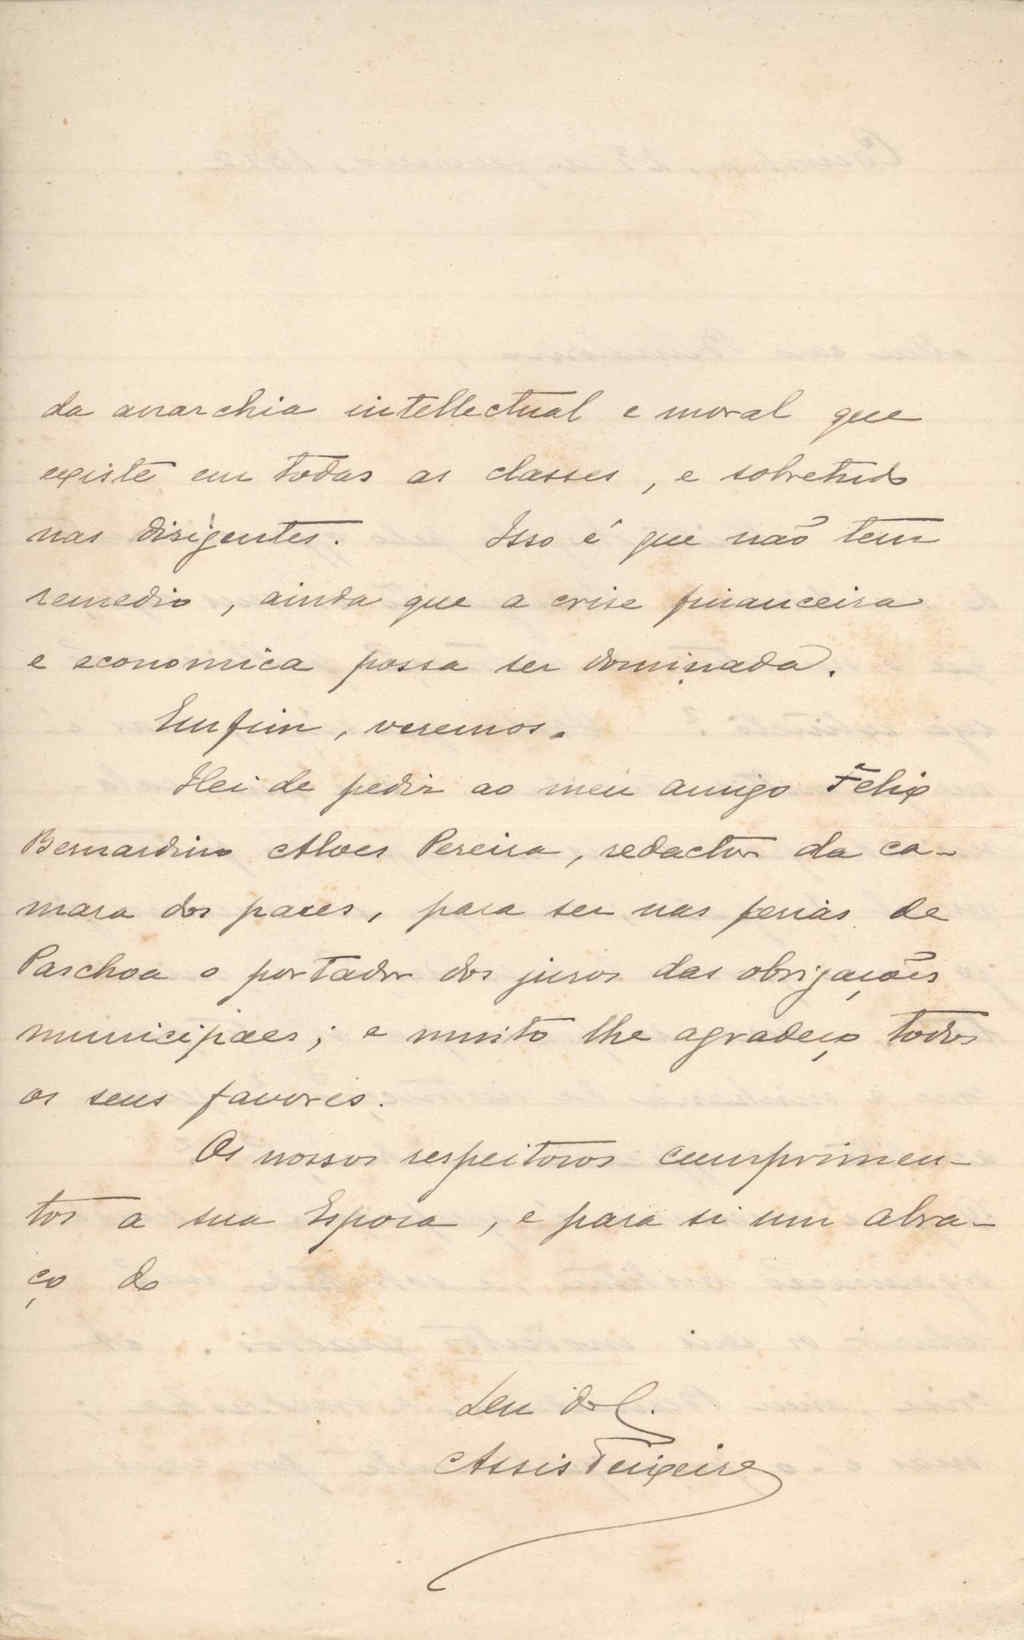 da anarchia intellectual e moral que
existe em todas as classes, e sobretudo
nas dirigentes. Isso é que não tem
remedio, ainda que a crise financeira
e economica possa ser dominada.
Emfim, veremos.
Hei de pedir ao meu amigo Felix
Bernardino Alves Pereira, redactor da ca-
mara dos pares, para ser nas ferias de
Paschoa o portador dos juros das obrigações
municipaes; e muito lhe agradeço todos
os seus favores.
Os nossos respeitosos cumprimen-
tos a sua Esposa, e para si um abra-
ço do
Seu do C.
Assis Teixeira